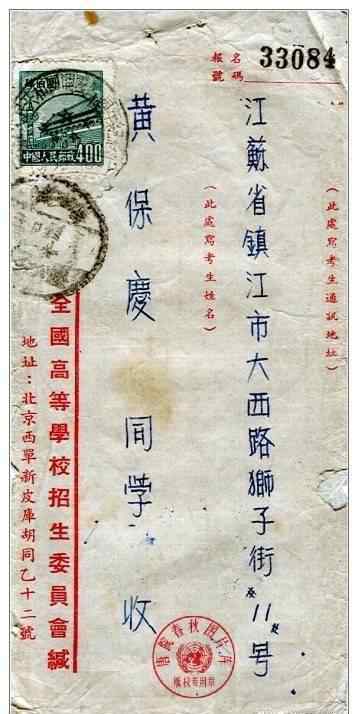 報名
號碼
33084
(此處寫考生通訊地址)
江蘇省鎮江市大西路獅子街11号
(此處寫考生姓名)
黄保慶 同学 收
全國高等學校招生委員會緘
地址：北京西單新皮庫胡同乙十二號
中國人民郵政 400
春秋图片库
版权专用章